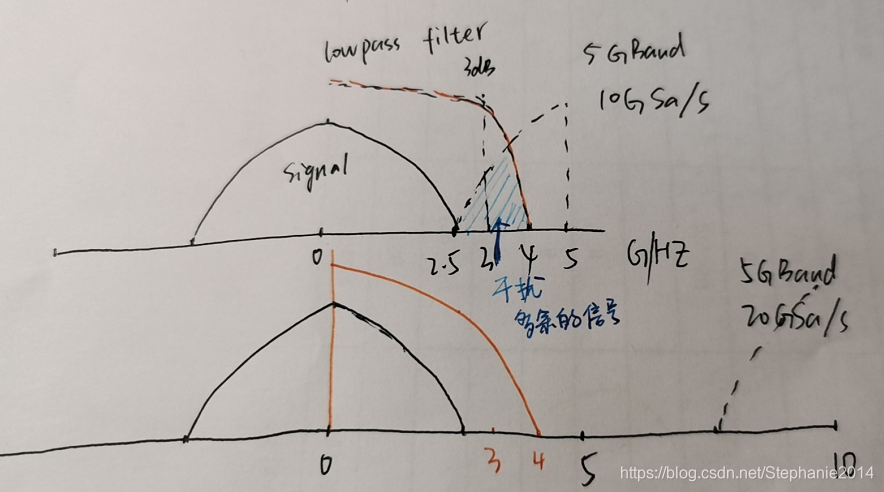 lowpass filter
3dB
5GBand
10GSa/s
signal
0
2.5
3
4
5
G/HZ
干扰
多余的信号
5GBand
20GSa/s
0
3
4
5
10
https://blog.csdn.net/Stephanie2014